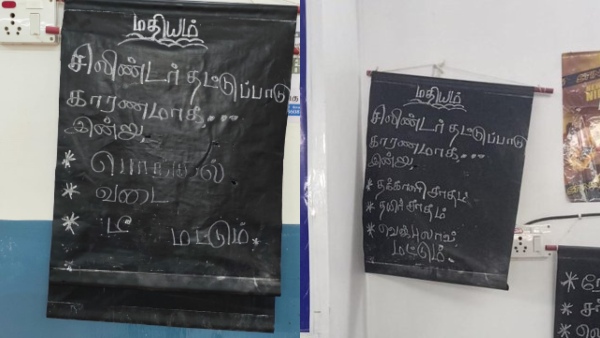 மதியம்
சிலிண்டர் தட்டுப்பாடு
காரணமாக....
இன்று,
* பொங்கல்
* வடை
* டீ மட்டும்.
மதியம்
சிலிண்டர் தட்டுப்பாடு
காரணமாக....
இன்று,
* தக்காளி சாதம்
* தயிர் சாதம்
* வெஜ் புலாவ்
மட்டும்.